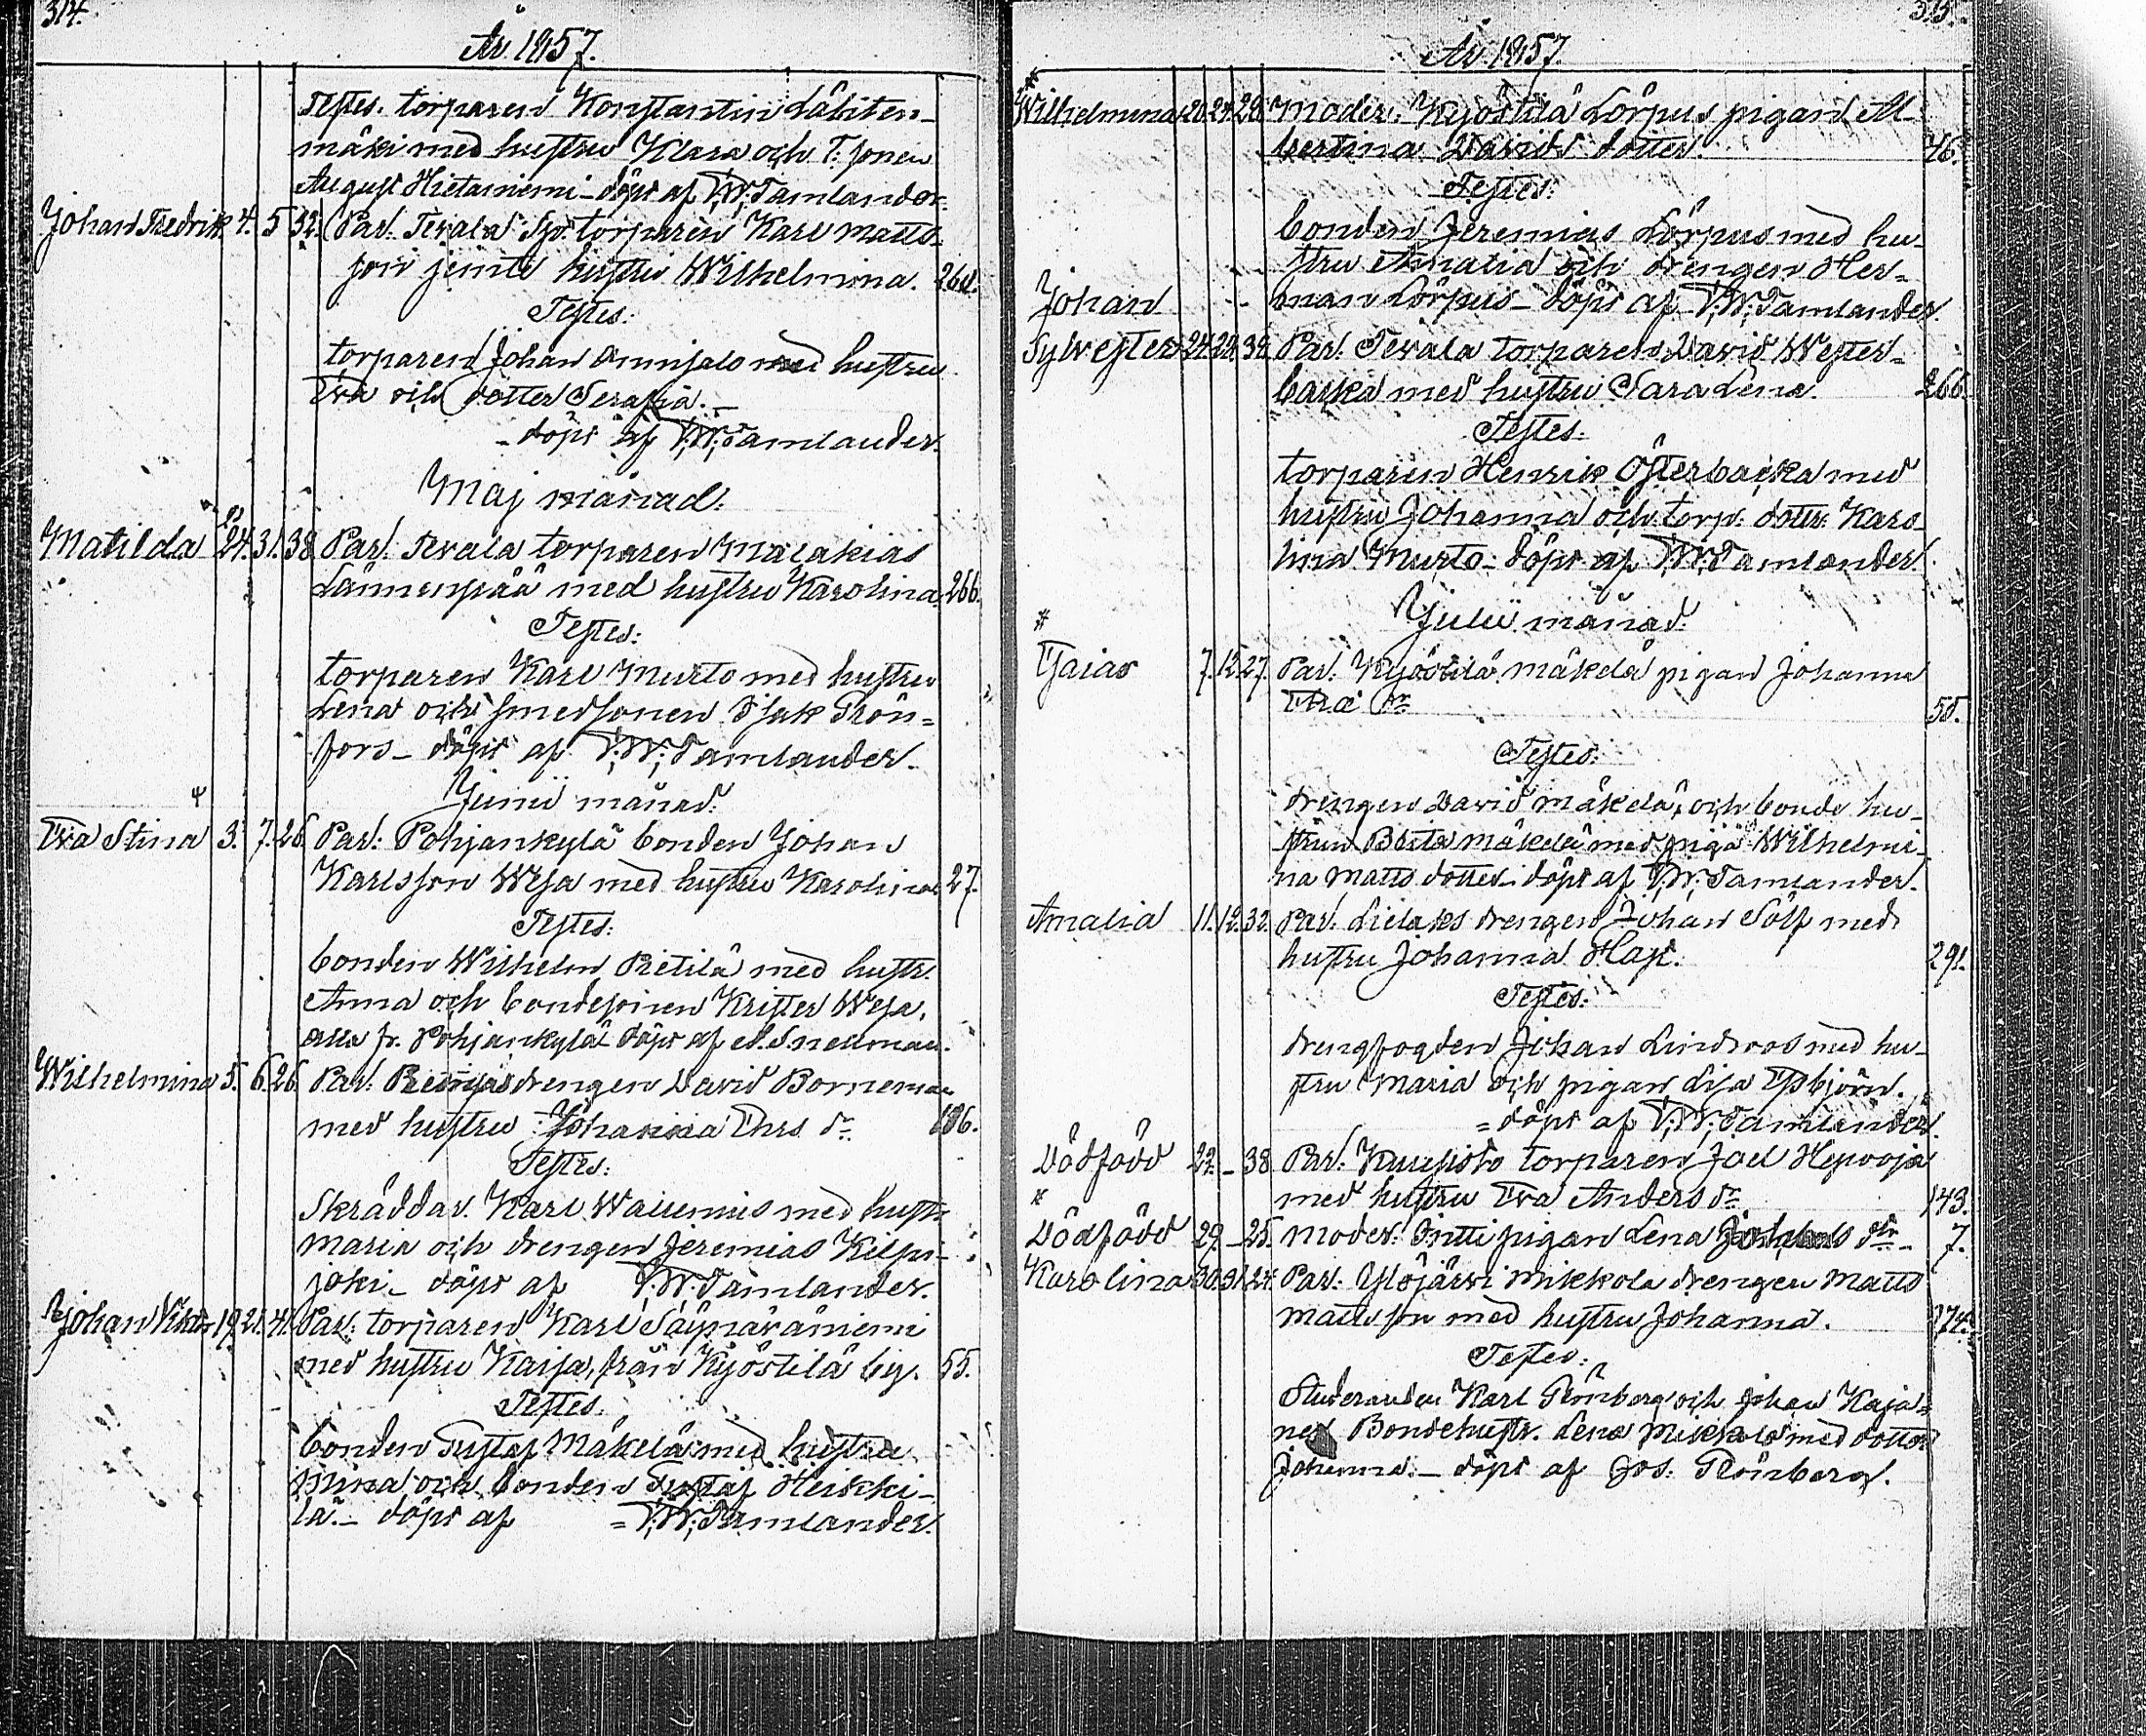 314.
År. 1857.
Testes. torparen Konstantin Läbiten-
mäki med hustru Klara och T. sonen
August Hietaniemi - döpt af V; W; Tamlander.
Johan Fredrik 4. 5 32. Par. Terala torparen Karl Matts-
son jemte hustru Wilhelmina. 264.
Testes:
torparen Johan Annisalo med hustru
Eva och dotter Serafia. -
- döpt af V; W; Tamlander.
Maj månad.
Matilda 24. 31. 38 Par. Terala torparen Malakias
Lännenpää med hustru Karolina 266.
Testes:
torparen Karl Murto med hustru
Lena och smedsonen Isak Grön=
fors - döpt af V; W; Tamlander.
Junii månad.
Eva Stina 3. 7. 26 Par: Pohjankylä bonden Johan
Karlsson Wesa med hustru Karolina 27.
Testes:
bonden Wilhelm Pietilä med hustr.
Anna och bondesonen Krister Wesa,
alla fr. Pohjankylä döpt af A. Snellman.
Wilhelmina 5. 6. 26. Par: drengen David Borneman
med hustru Johanna Thrs dr. 186.
Testes:
Skräddar. Karl Wallenius med hustr.
Maria och drengen Jeremias Kilpi-
joki - döpt af V; W; Tamlander.
Johan Viktor 19. 21. 41. Par: torparen Karl Säynäräniemi
med hustru Kaisa, från Kyöstilä by. 55.
Testes.
bonden Gustaf Mäkelä med hustru
Mina och bonden Gustaf Heikki-
lä. - döpt af = V; W; Tamlander.
315.
År. 1857.
Wilhelmina 20. 24. 28. Moder. Kyöstilä Lörpus pigan Al-
bertina Davids dotter. 46.
Testes:
bonden Jeremias Lörpus med hu-
stru Amalia och drengen Her=
man Lörpus - döpt af V; W; Tamlander.
Johan
Sylvester 24. 28. 38. Par: Terala torparen David Wester-
backa med hustru Sara Lena. 266.
Testes:
torparen Henrik Österbacka med
hustru Johanna och torp. dottr. Karo-
lina Murto - döpt af V; W; Tamlander.
Julii månad.
Gaias 7. 12. 27. Par. Kyöstilä Mäkelä pigan Johanna
dr 58.
Testes.
drengen David Mäkelä, och bonde hu-
strun Brita Mäkelä med piga Wilhelmi-
na Matts dotter. döpt af V; W; Tamlander.
Amalia 11. 12. 32. Par. Lielaks drengen Johan Sölf med
hustru Johanna 291.
Testes:
drengfogden Johan Lindroos med hu-
stru Maria och pigan Lisa Esbjörn.
= döpt af V; W; Tamlander.
Dödfödd 22. - 38 Par: Kuusisto torparen Joel Hepooja
med hustru Eva Anders dr. 143.
Dödfödd 29. - 25. Moder: Intti pigan Lena dtr - 7.
Karolina 30. 31. 24. Par: Ylöjärvi Mikkola drengen Matts
Mattsson med hustru Johanna. 374.
Testes:
Studeranden Karl Grönberg och Johan Kaja=
ne Bondehustr. Lena Mikkola med dotter
Johanna. - döpt af Jos: Grönberg.